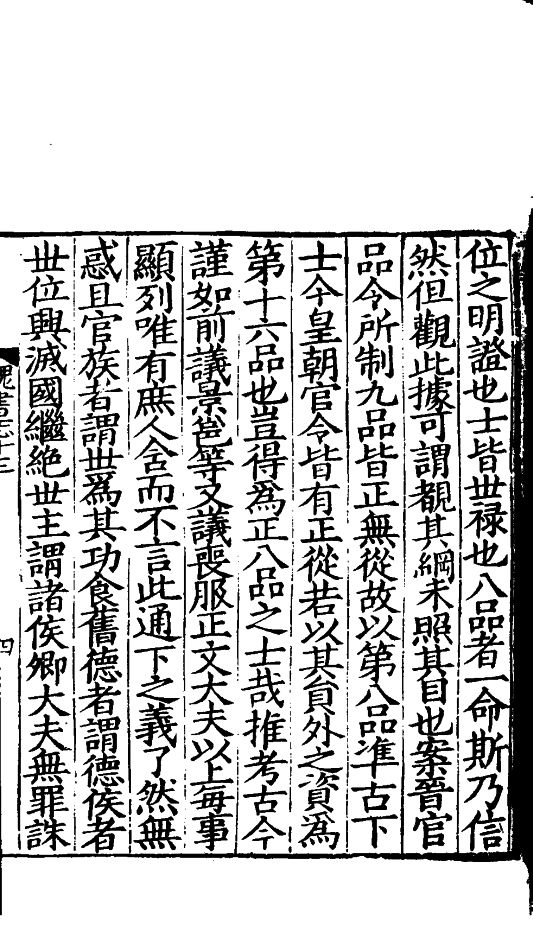 位之明證也士皆世禄也八品者一命斯乃信
然但觀此據可謂覩其綱未照其目也案晉官
品令所制九品皆正無從故以第八品準古下
士今皇朝官令皆有正從若以其負外之資為
第十六品也豈得為正八品之士哉推考古今
謹如前議景邕等又議喪服正文大夫以上每事
顯列唯有庶人含而不言此通下之義了然無
惑且官族者謂世爲其功食舊德者謂德侯者
世位興滅國繼絶世主謂諸侯卿大夫無罪誅
魏書志十三
四